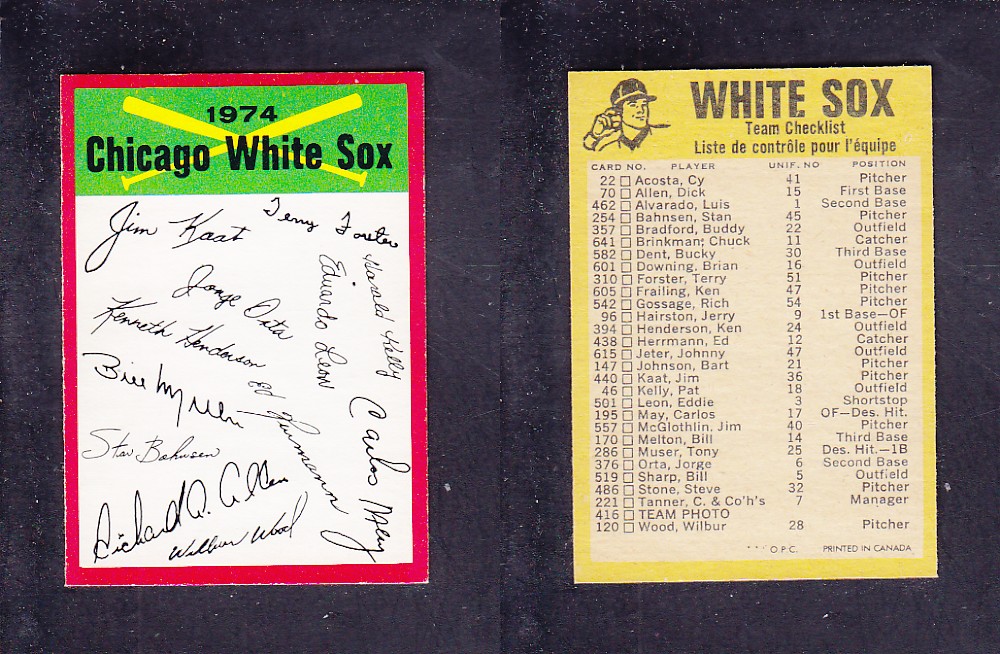 1974
Chicago White Sox
Jim Kaat
Terry Forster
Harold Kelly
Eduardo Leon
Jorge Orta
Kenneth Henderson
Ed Herrmann
Bill
Carlos May
Stan Bahnsen
Richard A. Allen
Wilbur Wood
WHITE SOX
Team Checklist
Liste de contrôle pour l'équipe
CARD NO. PLAYER UNIF. NO POSITION
22 Acosta, Cy 41 Pitcher
70 Allen, Dick 15 First Base
462 Alvarado, Luis 1 Second Base
254 Bahnsen, Stan 45 Pitcher
357 Bradford, Buddy 22 Outfield
641 Brinkman, Chuck 11 Catcher
582 Dent, Bucky 30 Third Base
601 Downing, Brian 16 Outfield
310 Forster, Terry 51 Pitcher
605 Frailing, Ken 47 Pitcher
542 Gossage, Rich 54 Pitcher
96 Hairston, Jerry 9 1st Base—OF
394 Henderson, Ken 24 Outfield
438 Herrmann, Ed 12 Catcher
615 Jeter, Johnny 47 Outfield
147 Johnson, Bart 21 Pitcher
440 Kaat, Jim 36 Pitcher
46 Kelly, Pat 18 Outfield
501 Leon, Eddie 3 Shortstop
195 May, Carlos 17 OF—Des. Hit.
557 McGlothlin, Jim 40 Pitcher
170 Melton, Bill 14 Third Base
286 Muser, Tony 25 Des. Hit.—1B
376 Orta, Jorge 6 Second Base
519 Sharp, Bill 5 Outfield
486 Stone, Steve 32 Pitcher
221 Tanner, C. & Co'h's 7 Manager
416 TEAM PHOTO
120 Wood, Wilbur 28 Pitcher
O.P.C. PRINTED IN CANADA